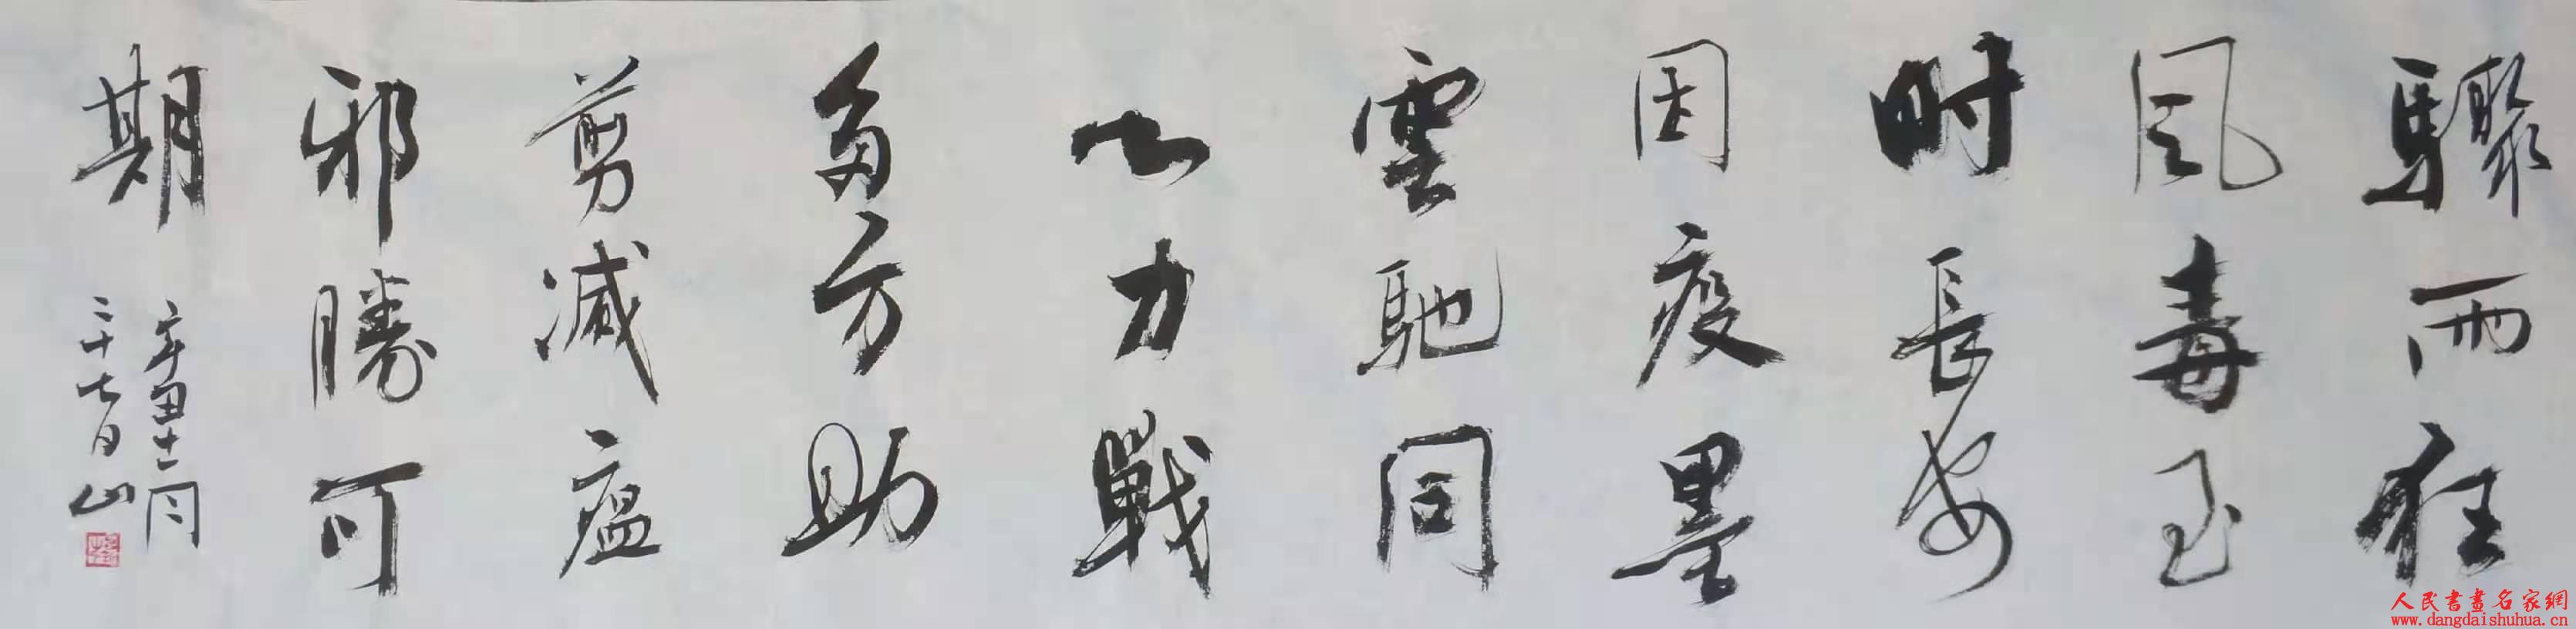 驟雨狂
風毒至
时長安
因疫墨
雲馳同
心力戰
多方助
剪减瘟
邪勝可
期
辛丑十二月
二十七日山
人民書畫名家網
www.dangdaishuhua.cn